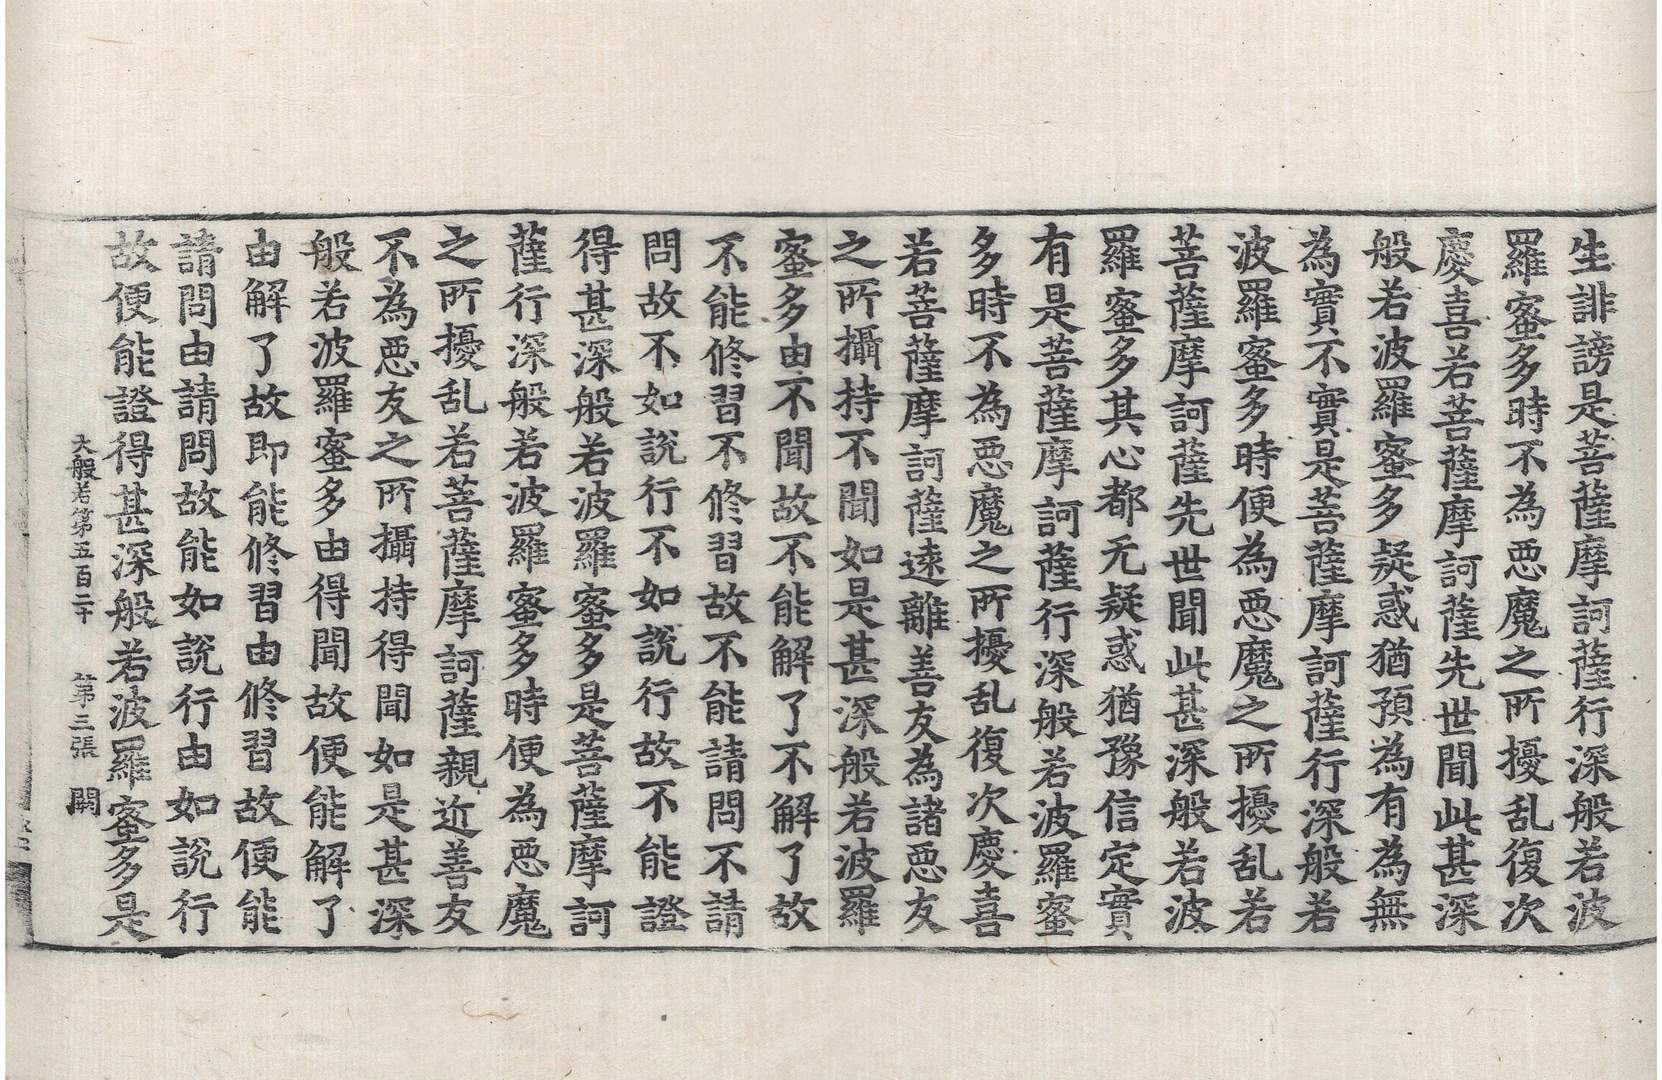 生誹謗是菩薩摩訶薩行深般若波
羅蜜多時不為悪魔之所擾乱復次
慶喜若菩薩摩訶薩先世聞此甚深
般若波羅蜜多疑惑猶預為有為無
為實不實是菩薩摩訶薩行深般若
波羅蜜多時便為悪魔之所擾乱若
菩薩摩訶薩先世聞此甚深般若波
羅蜜多其心都无疑惑猶豫信定實
有是菩薩摩訶薩行深般若波羅蜜
多時不為悪魔之所擾乱復次慶喜
若菩薩摩訶薩遠離善友為諸悪友
之所攝持不聞如是甚深般若波羅
蜜多由不聞故不能解了不解了故
不能修習不修習故不能請問不請
問故不如說行不如說行故不能證
得甚深般若波羅蜜多是菩薩摩訶
薩行深般若波羅蜜多時便為悪魔
之所擾乱若菩薩摩訶薩親近善友
不為悪友之所攝持得聞如是甚深
般若波羅蜜多由得聞故便能解了
由解了故即能修習由修習故便能
請問由請問故能如說行由如說行
故便能證得甚深般若波羅蜜多是
大般若第五百二十 第三張 闕